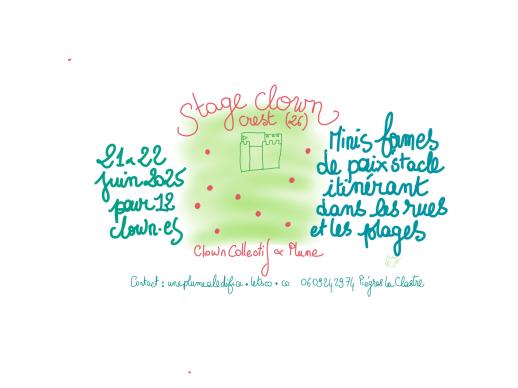 Stage Clown
crest (26)
21 a 22
juin 2025
pour 12
clown.es
Minis fames
de paix'stacle
itinérant
dans les rues
et les plages
Clown Collectif α Plume
Contact : uneplumealedifice • letsco • co 0609242974 Piégros la Clastre